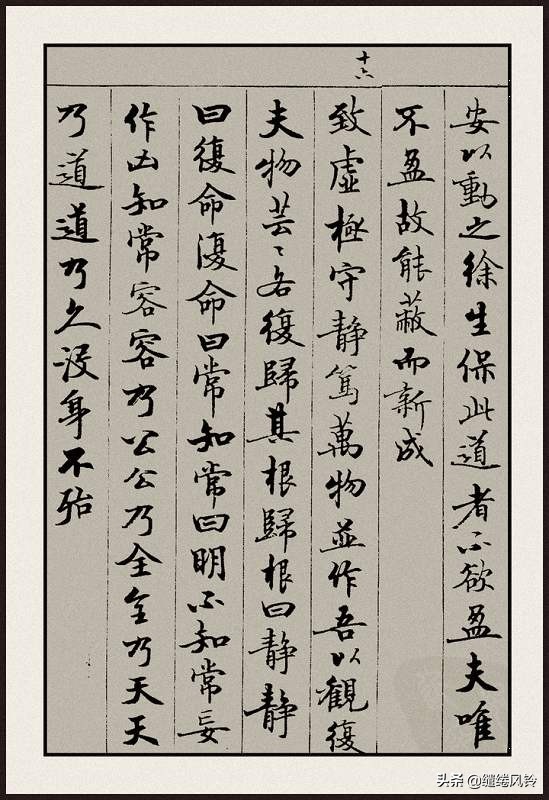 安以動之徐生保此道者不欲盈夫唯
不盈故能蔽而新成
十六
致虛極守静篤萬物並作吾以観復
夫物芸〻各復歸其根歸根曰静静
曰復命復命曰常知常曰明不知常妄
作凶知常容容乃公公乃全全乃天天
乃道道乃久沒身不殆
头条 @缱绻风铃